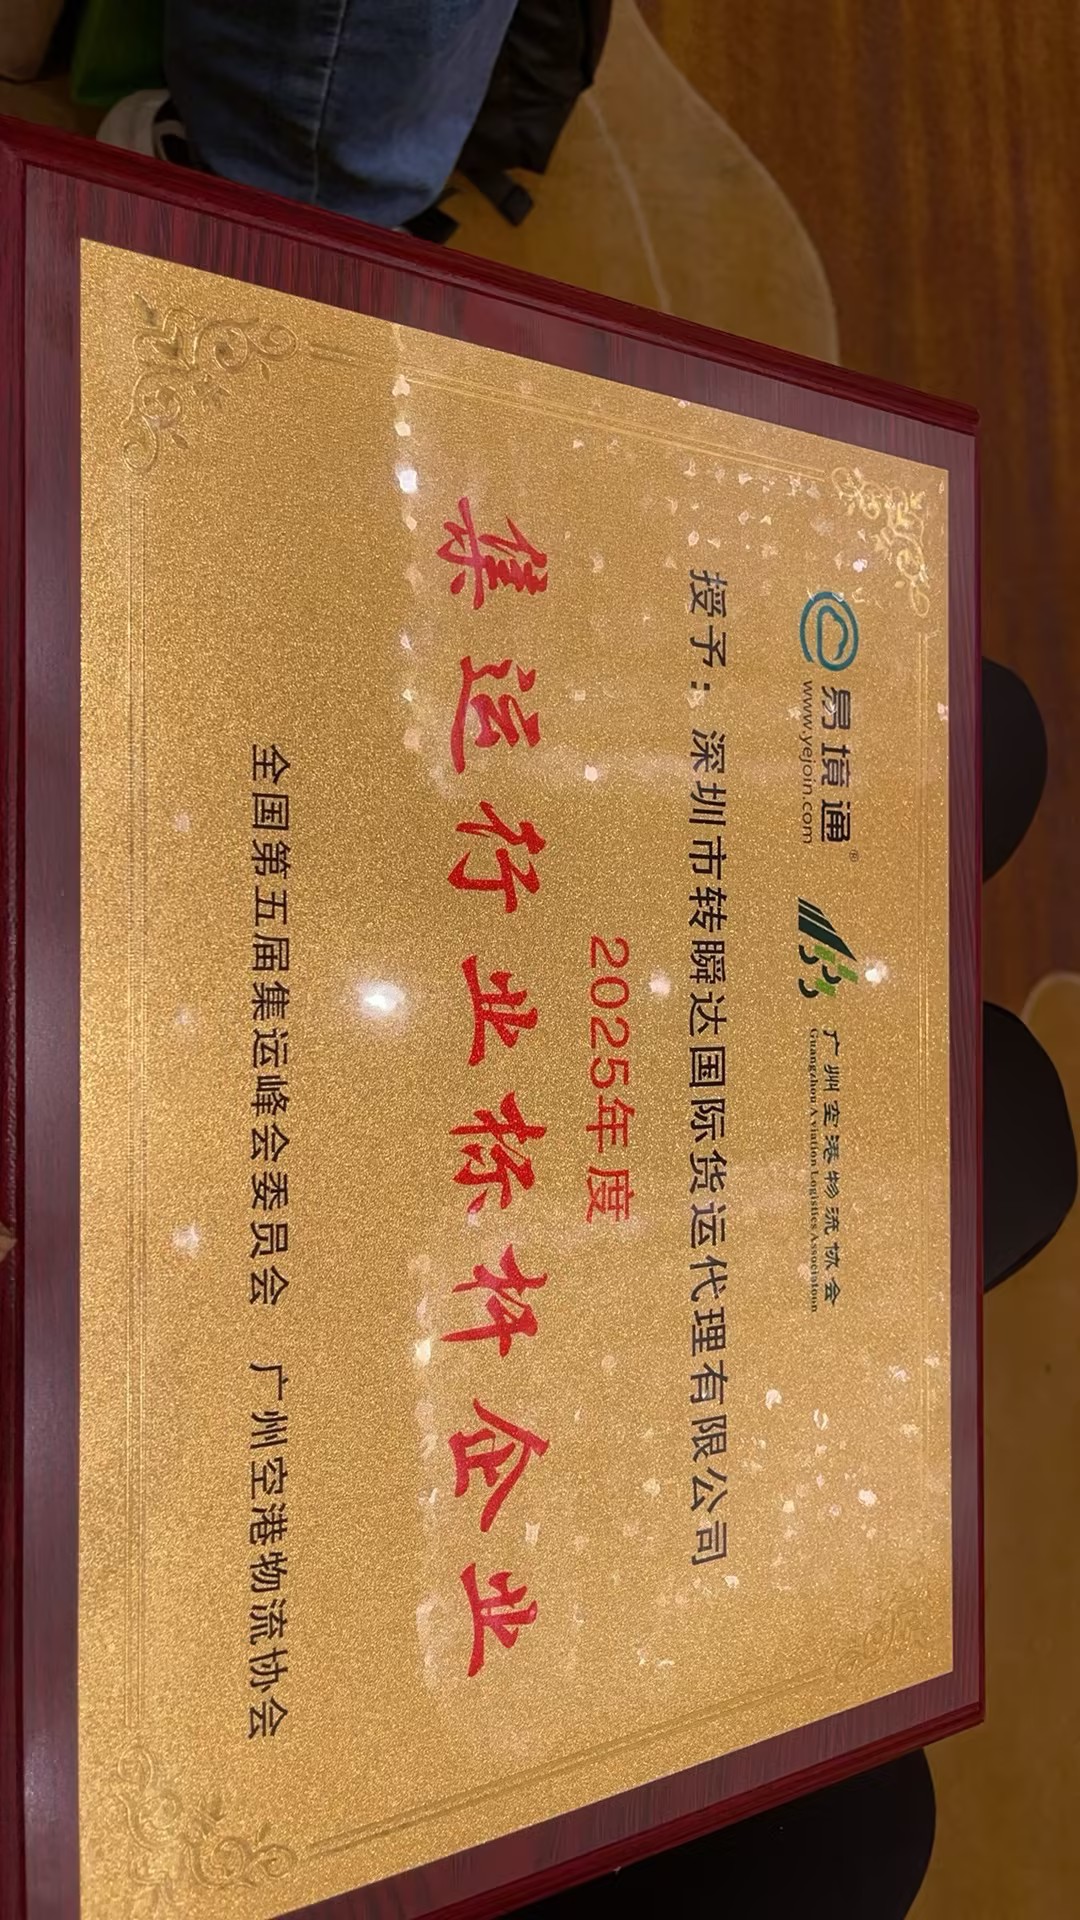 易境通®
www.yejoin.com
广州空港物流协会
Guangzhou Aviation Logistics Association
授予：深圳市转瞬达国际货运代理有限公司
2025年度
集运行业标杆企业
全国第五届集运峰会委员会 广州空港物流协会